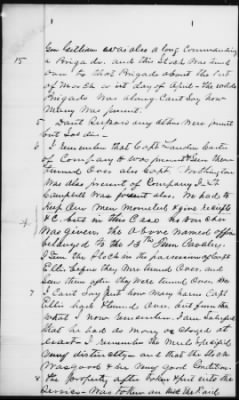 Gen Gillam was also a long Commanding
15 a Brigade. and this Stock was turned
over to that Brigade about the last
of March or 1st day of April - the whole
Brigade was along Cant Say how
Many was present.
5 Dont Remember any other were present
but Soldiers
6 I remember that Capt Landon Carter
of Company was present
Turned Over also Capt Northington
Was also present of Company I
Campbell Was present also. We had to
Men Mounted & give receipts
&C. but in this Case No Voucher
4 Was given, the above named officers
belonged to the 13th Tenn Cavalry.
I Saw the Stock in the possession of Capt
Ellis before they were turned Over, and
Saw them after they were turned Over
7 I Cant Say Just how many Mares Capt
Ellis turned Over, but from the
what I now remember I am Satisfied
that he had as many as charged at
least I remember the Mules
very distinctly and that the Stock
Was good & in very good Condition.
8 the property after taken & put into the
Service Was taken on the Raid